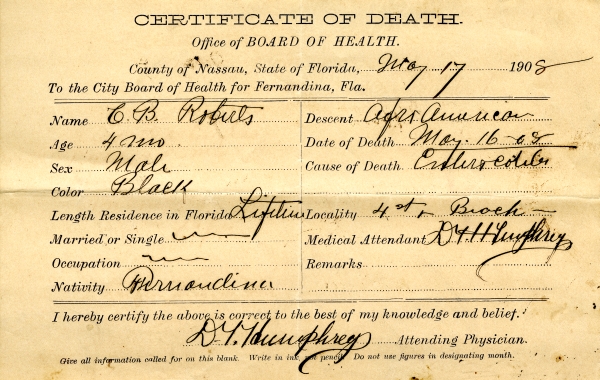 CERTIFICATE OF DEATH.
Office of BOARD OF HEALTH.
County of Nassau, State of Florida, May 17 1908
To the City Board of Health for Fernandina, Fla.
Name C. B. Roberts
Age 4 mo.
Sex Male
Color Black
Length Residence in Florida Lifetime
Married or Single
Occupation
Nativity Fernandina
Descent Afro American
Date of Death May-16-08
Cause of Death Entero colitis
Locality 4 st &
Medical Attendant D. T. Humphrey
Remarks
I hereby certify the above is correct to the best of my knowledge and belief.
D. T. Humphrey Attending Physician.
Give all information called for on this blank. Write in ink, not pencil. Do not use figures in designating month.